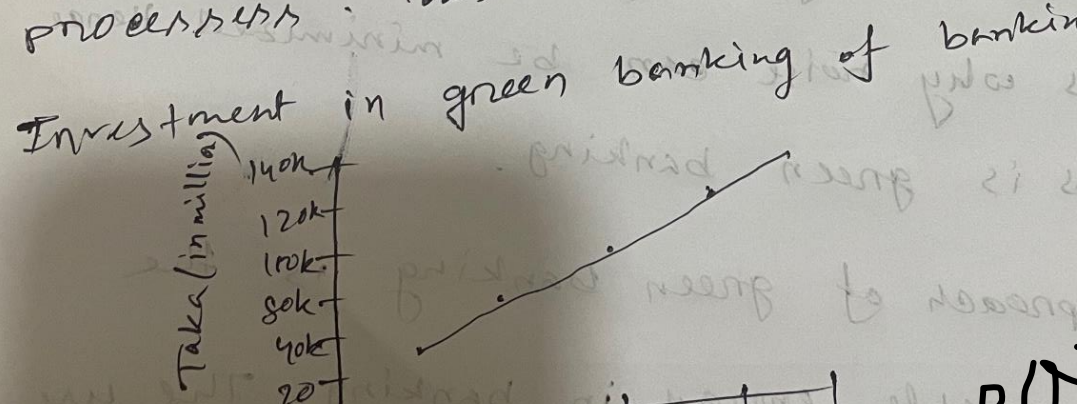 processess
Investment in green banking of bankin
Taka (in million)
140k
120k
100k
80k
40k
20